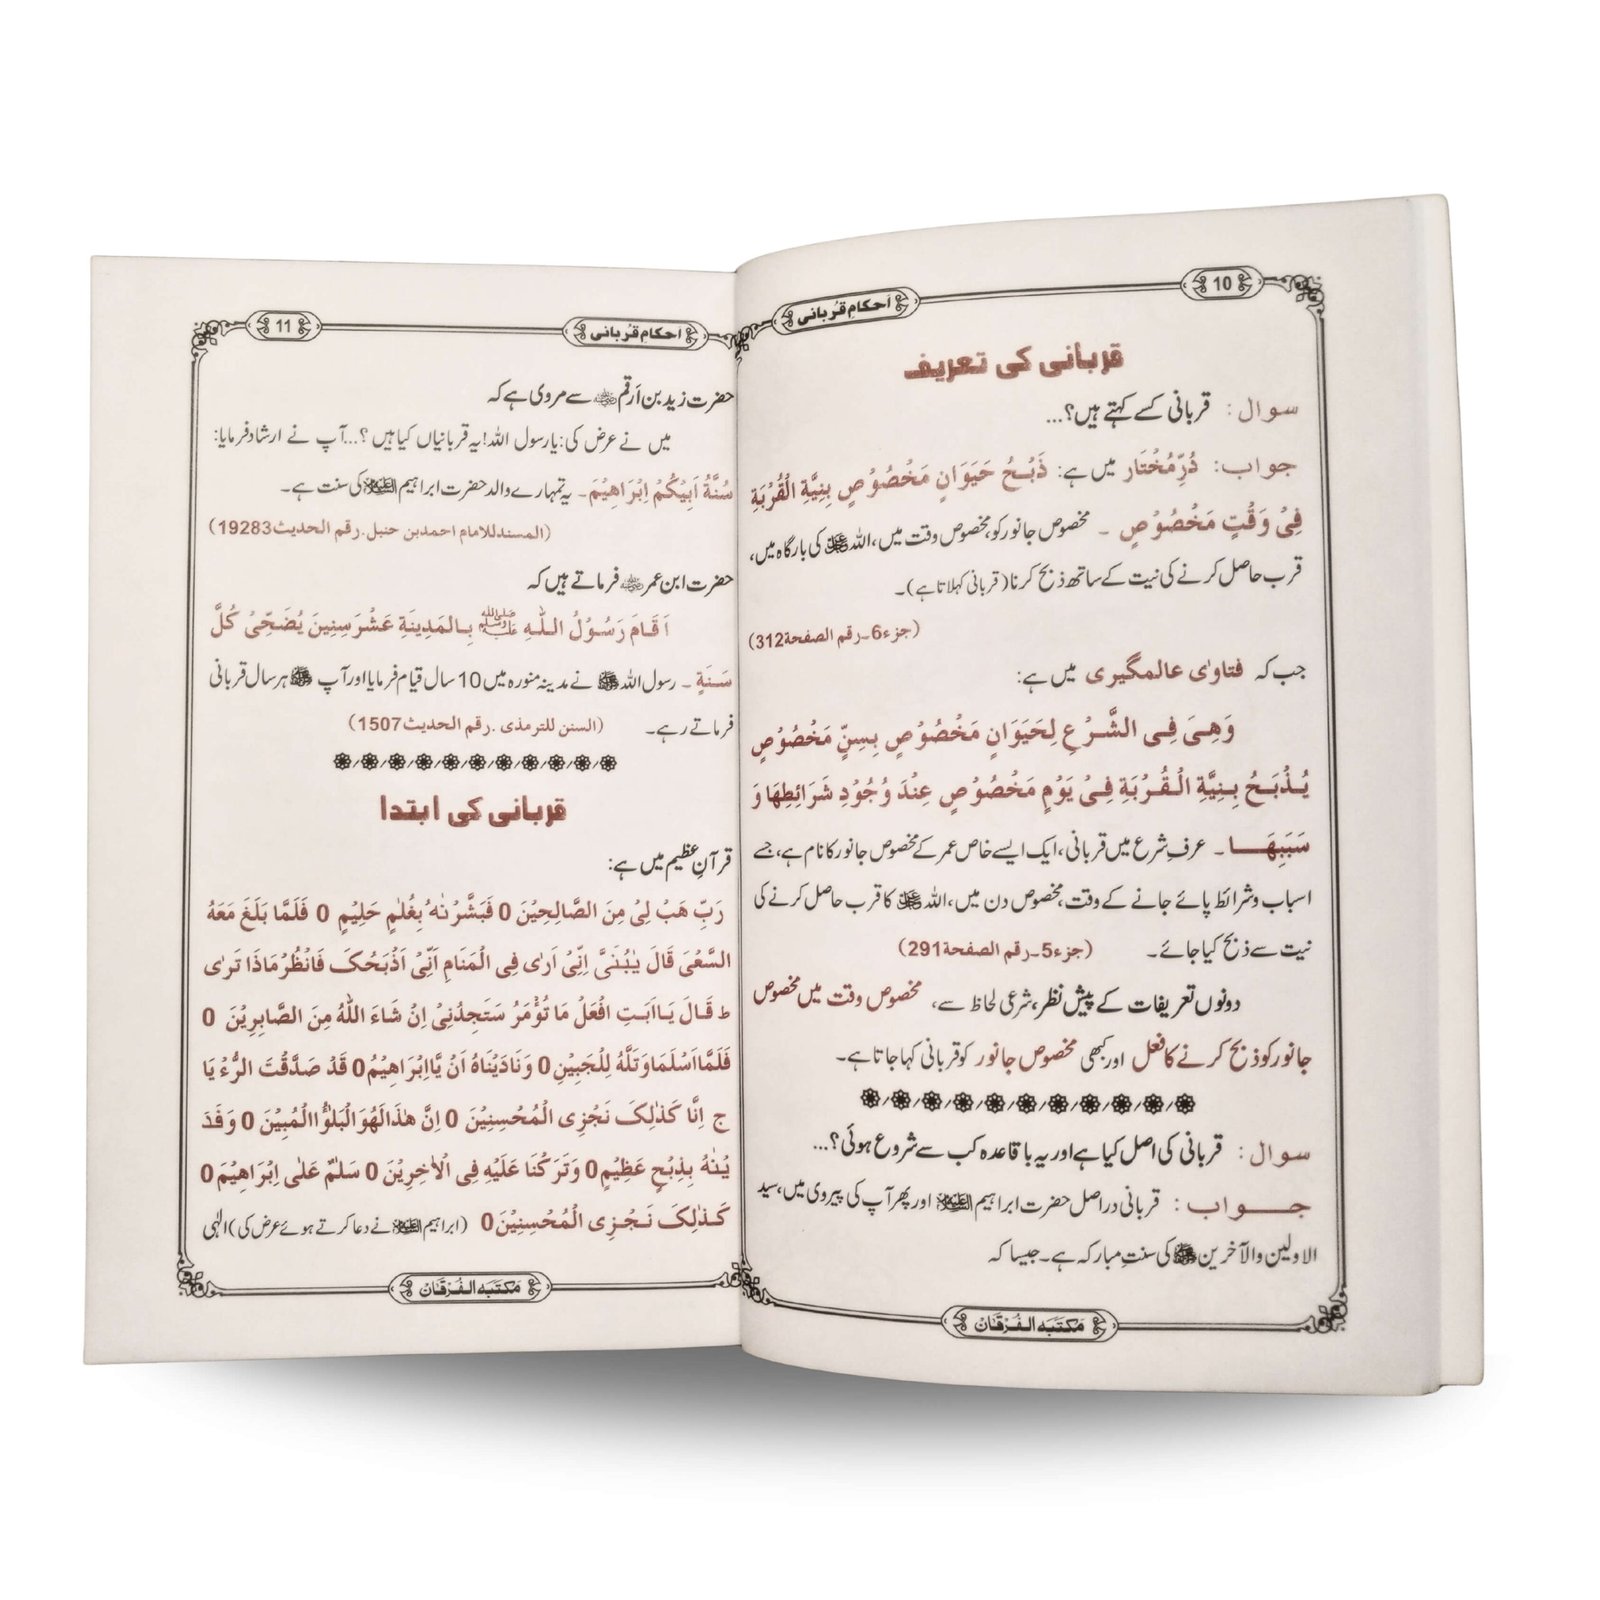 10
احکامِ قُربانی
قربانی کی تعریف
سوال: قربانی کسے کہتے ہیں؟...
جواب: دُرِّمُخْتَار میں ہے: ذَبْحُ حَيَوَانٍ مَخْصُوْصٍ بِنِيَّةِ الْقُرْبَةِ
فِیْ وَقْتٍ مَخْصُوْصٍ ۔ مخصوص جانور کو، مخصوص وقت میں، اللہ عزوجل کی بارگاہ میں،
قرب حاصل کرنے کی نیت کے ساتھ ذبح کرنا (قربانی کہلاتا ہے)۔
(جزء6۔رقم الصفحة312)
جب کہ فتاویٰ عالمگیری میں ہے:
وَهِیَ فِی الشَّرْعِ لِحَيَوَانٍ مَخْصُوْصٍ بِسِنٍّ مَخْصُوْصٍ
يُذْبَحُ بِنِيَّةِ الْقُرْبَةِ فِیْ يَوْمٍ مَخْصُوْصٍ عِنْدَ وُجُوْدِ شَرَائِطِهَا وَ
سَبَبِهَا ۔ عرفِ شرع میں قربانی، ایک ایسے خاص عمر کے مخصوص جانور کا نام ہے، جسے
اسباب و شرائط پائے جانے کے وقت، مخصوص دن میں، اللہ عزوجل کا قرب حاصل کرنے کی
نیت سے ذبح کیا جائے۔ (جزء5۔رقم الصفحة291)
دونوں تعریفات کے پیشِ نظر، شرعی لحاظ سے، مخصوص وقت میں مخصوص
جانور کو ذبح کرنے کا فعل اور کبھی مخصوص جانور کو قربانی کہا جاتا ہے۔
سوال: قربانی کی اصل کیا ہے اور یہ باقاعدہ کب سے شروع ہوئی؟...
جواب: قربانی دراصل حضرت ابراہیم علیہ السلام اور پھر آپ کی پیروی میں، سید
الاولین والآخرین ﷺ کی سنتِ مبارکہ ہے۔ جیسا کہ
مکتبہ الفُرقان
11
احکامِ قُربانی
حضرت زید بن اَرقم رضی اللہ عنہ سے مروی ہے کہ
میں نے عرض کی: یا رسول اللہ! یہ قربانیاں کیا ہیں؟... آپ نے ارشاد فرمایا:
سُنَّةُ اَبِيْكُمْ اِبْرَاهِيْمَ۔ یہ تمہارے والد حضرت ابراہیم علیہ السلام کی سنت ہے۔
(المسند للامام احمد بن حنبل۔رقم الحدیث19283)
حضرت ابن عمر رضی اللہ عنہ فرماتے ہیں کہ
اَقَامَ رَسُوْلُ اللّٰهِ ﷺ بِالْمَدِيْنَةِ عَشْرَ سِنِيْنَ يُضَحِّیْ كُلَّ
سَنَةٍ ۔ رسول اللہ ﷺ نے مدینہ منورہ میں 10 سال قیام فرمایا اور آپ ﷺ ہر سال قربانی
فرماتے رہے۔ (السنن للترمذی۔رقم الحدیث1507)
قربانی کی ابتدا
قرآنِ عظیم میں ہے:
رَبِّ هَبْ لِیْ مِنَ الصَّالِحِيْنَ 0 فَبَشَّرْنٰهُ بِغُلٰمٍ حَلِيْمٍ 0 فَلَمَّا بَلَغَ مَعَهُ
السَّعْیَ قَالَ يٰبُنَیَّ اِنِّیْ اَرٰی فِی الْمَنَامِ اَنِّیْ اَذْبَحُکَ فَانْظُرْ مَاذَا تَرٰی
ط قَالَ يَااَبَتِ افْعَلْ مَا تُؤْمَرُ سَتَجِدُنِیْ اِنْ شَاءَ اللّٰهُ مِنَ الصَّابِرِيْنَ 0
فَلَمَّا اَسْلَمَا وَتَلَّهُ لِلْجَبِيْنِ 0 وَنَادَيْنَاهُ اَنْ يَّااِبْرَاهِيْمُ 0 قَدْ صَدَّقْتَ الرُّءْ يَا
ج اِنَّا كَذٰلِکَ نَجْزِی الْمُحْسِنِيْنَ 0 اِنَّ هٰذَا لَهُوَ الْبَلٰؤُا الْمُبِيْنَ 0 وَفَدَ
يْنٰهُ بِذِبْحٍ عَظِيْمٍ 0 وَتَرَكْنَا عَلَيْهِ فِی الْاٰخِرِيْنَ 0 سَلٰمٌ عَلٰی اِبْرَاهِيْمَ 0
كَذٰلِکَ نَجْزِی الْمُحْسِنِيْنَ 0 (ابراہیم علیہ السلام نے دعا کرتے ہوئے عرض کی) الٰہی
مکتبہ الفُرقان